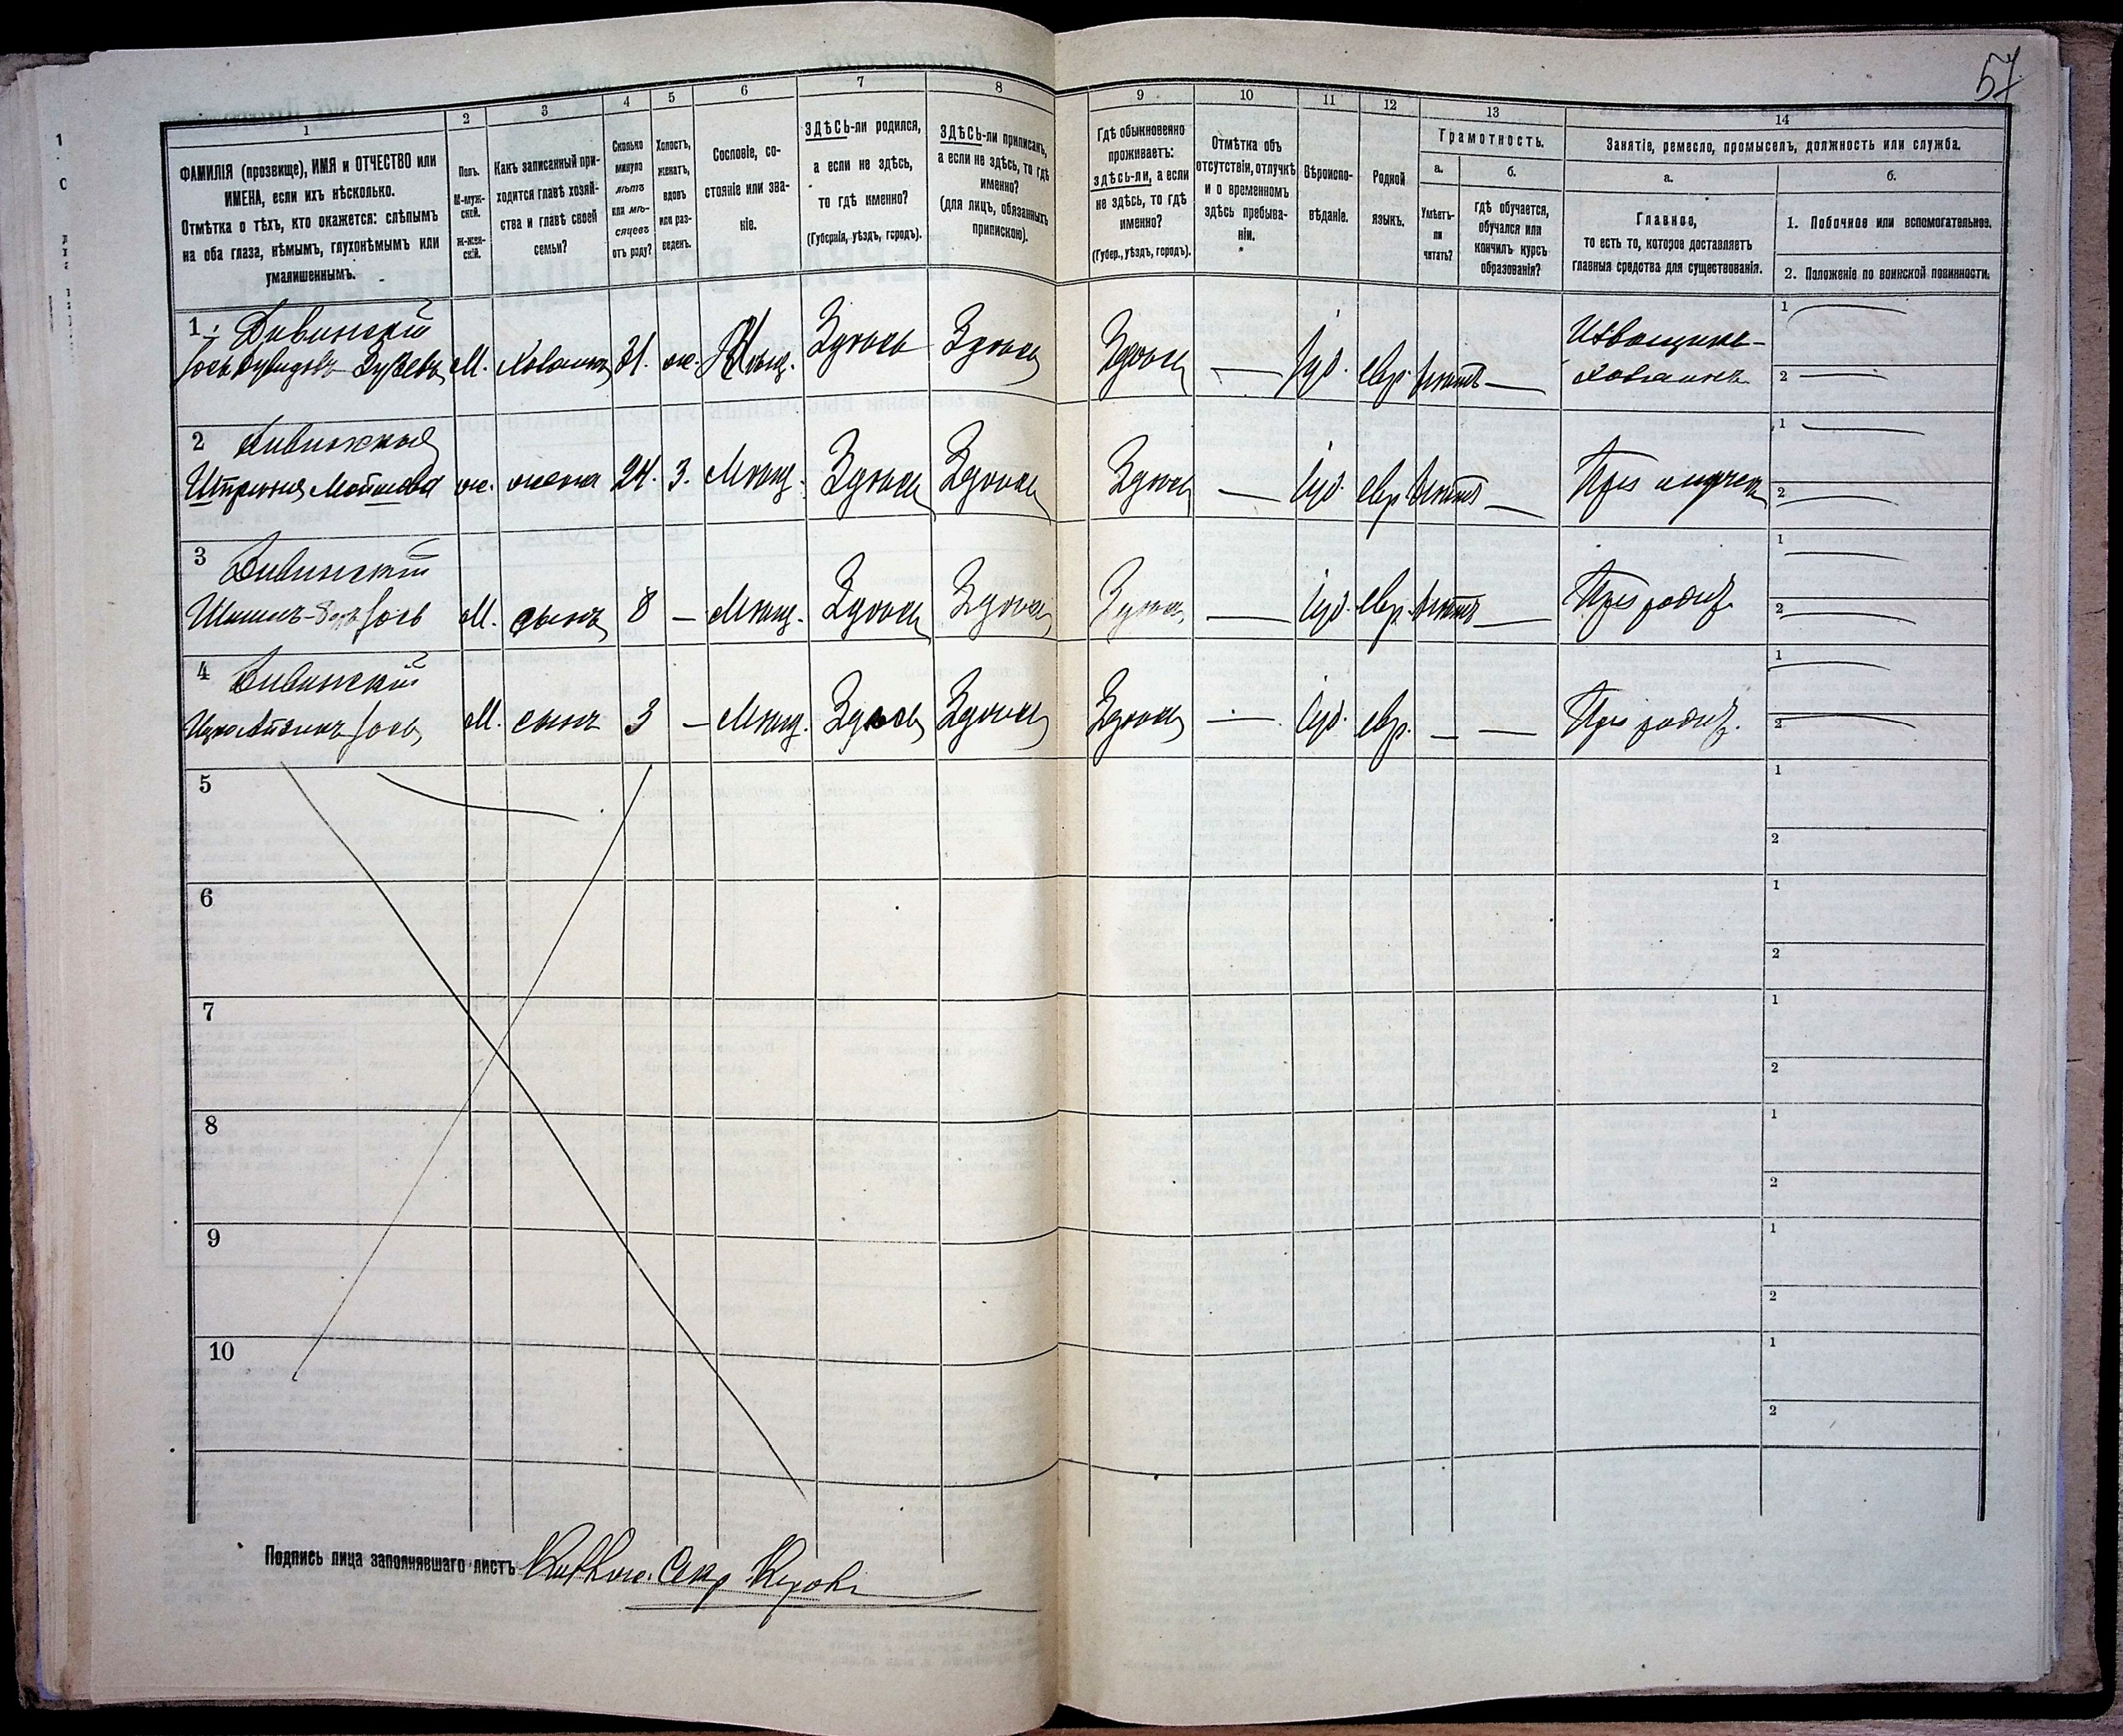 57
1 2 3 4 5 6 7 8 9 10 11 12 13 14
ФАМИЛІЯ (прозвище), ИМЯ и ОТЧЕСТВО или
ИМЕНА, если ихъ нѣсколько.
Отмѣтка о тѣхъ, кто окажется: слѣпымъ
на оба глаза, нѣмымъ, глухонѣмымъ или
умалишеннымъ.
Полъ.
М-муж-
ской.
Ж-жен-
скій.
Какъ записанный при-
ходится главѣ хозяй-
ства и главѣ своей
семьи?
Сколько
минуло
лѣтъ
или мѣ-
сяцевъ
отъ роду?
Холостъ,
женатъ,
вдовъ
или раз-
веденъ.
Сословіе, со-
стояніе или зва-
ніе.
ЗДѢСЬ-ли родился,
а если не здѣсь,
то гдѣ именно?
(Губернія, уѣздъ, городъ).
ЗДѢСЬ-ли приписанъ,
а если не здѣсь, то гдѣ
именно?
(для лицъ, обязанныхъ
припискою).
Гдѣ обыкновенно
проживаетъ:
здѣсь-ли, а если
не здѣсь, то гдѣ
именно?
(Губер., уѣздъ, городъ).
Отмѣтка объ
отсутствіи, отлучкѣ
и о временномъ
здѣсь пребыва-
ніи.
Вѣроиспо-
вѣданіе.
Родной
языкъ.
Грамотность.
а.
Умѣетъ-
ли
читать?
б.
Гдѣ обучается,
обучался или
кончилъ курсъ
образованія?
Занятіе, ремесло, промыселъ, должность или служба.
а.
Главное,
то есть то, которое доставляетъ
главныя средства для существованія.
б.
1. Побочное или вспомогательное.
2. Положеніе по воинской повинности.
1 М. Хозяинъ 31. ж. Мѣщ. Здѣсь Здѣсь Здѣсь — Іуд. евр. — Извощикъ-
хозяинъ
1 —
2 —
2 ж. жена 24. З. Мѣщ. Здѣсь Здѣсь Здѣсь — Іуд. евр. — При мужѣ
1 —
2 —
3 М. сынъ 8 — Мѣщ. Здѣсь Здѣсь Здѣсь — Іуд. евр. — При родит.
1 —
2 —
4 М. сынъ 3 — Мѣщ. Здѣсь Здѣсь Здѣсь — Іуд. евр. — — При родит.
1 —
2 —
5
1
2
6
1
2
7
1
2
8
1
2
9
1
2
10
1
2
Подпись лица заполнявшаго листъ